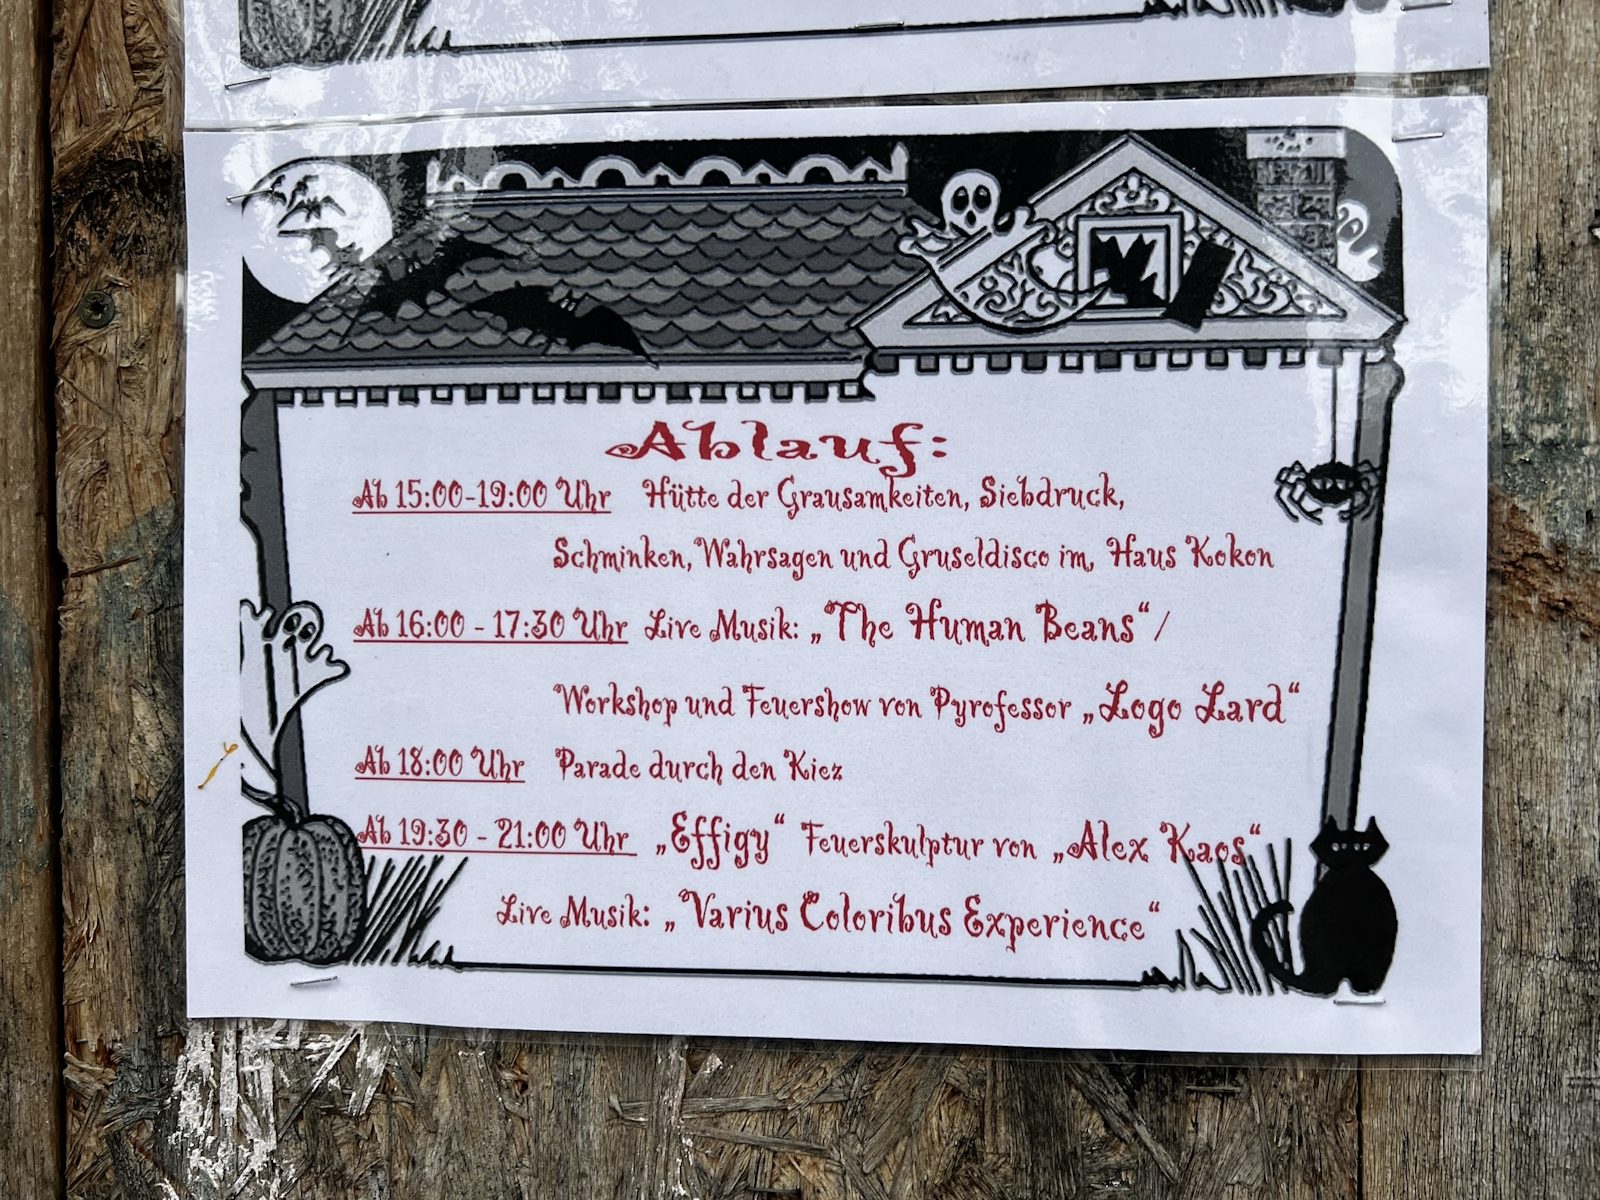 Ablauf:
Ab 15:00-19:00 Uhr Hütte der Grausamkeiten, Siebdruck,
Schminken, Wahrsagen und Gruseldisco im, Haus Kokon
Ab 16:00 - 17:30 Uhr Live Musik: „The Human Beans“ /
Workshop und Feuershow von Pyrofessor „Logo Lard“
Ab 18:00 Uhr Parade durch den Kiez
Ab 19:30 - 21:00 Uhr „Effigy“ Feuerskulptur von „Alex Kaos“
Live Musik: „Varius Coloribus Experience“